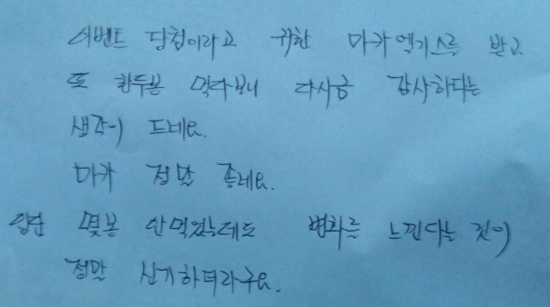 이벤트 당첨이라고 귀한 마카엑기스를 받고
또 한두봉 먹다보니 다시금 감사하다는
생각이 드네요.
마카 정말 좋네요.
일단 몇봉 안먹었는데도 변화를 느낀다는 것이
정말 신기하더라구요.